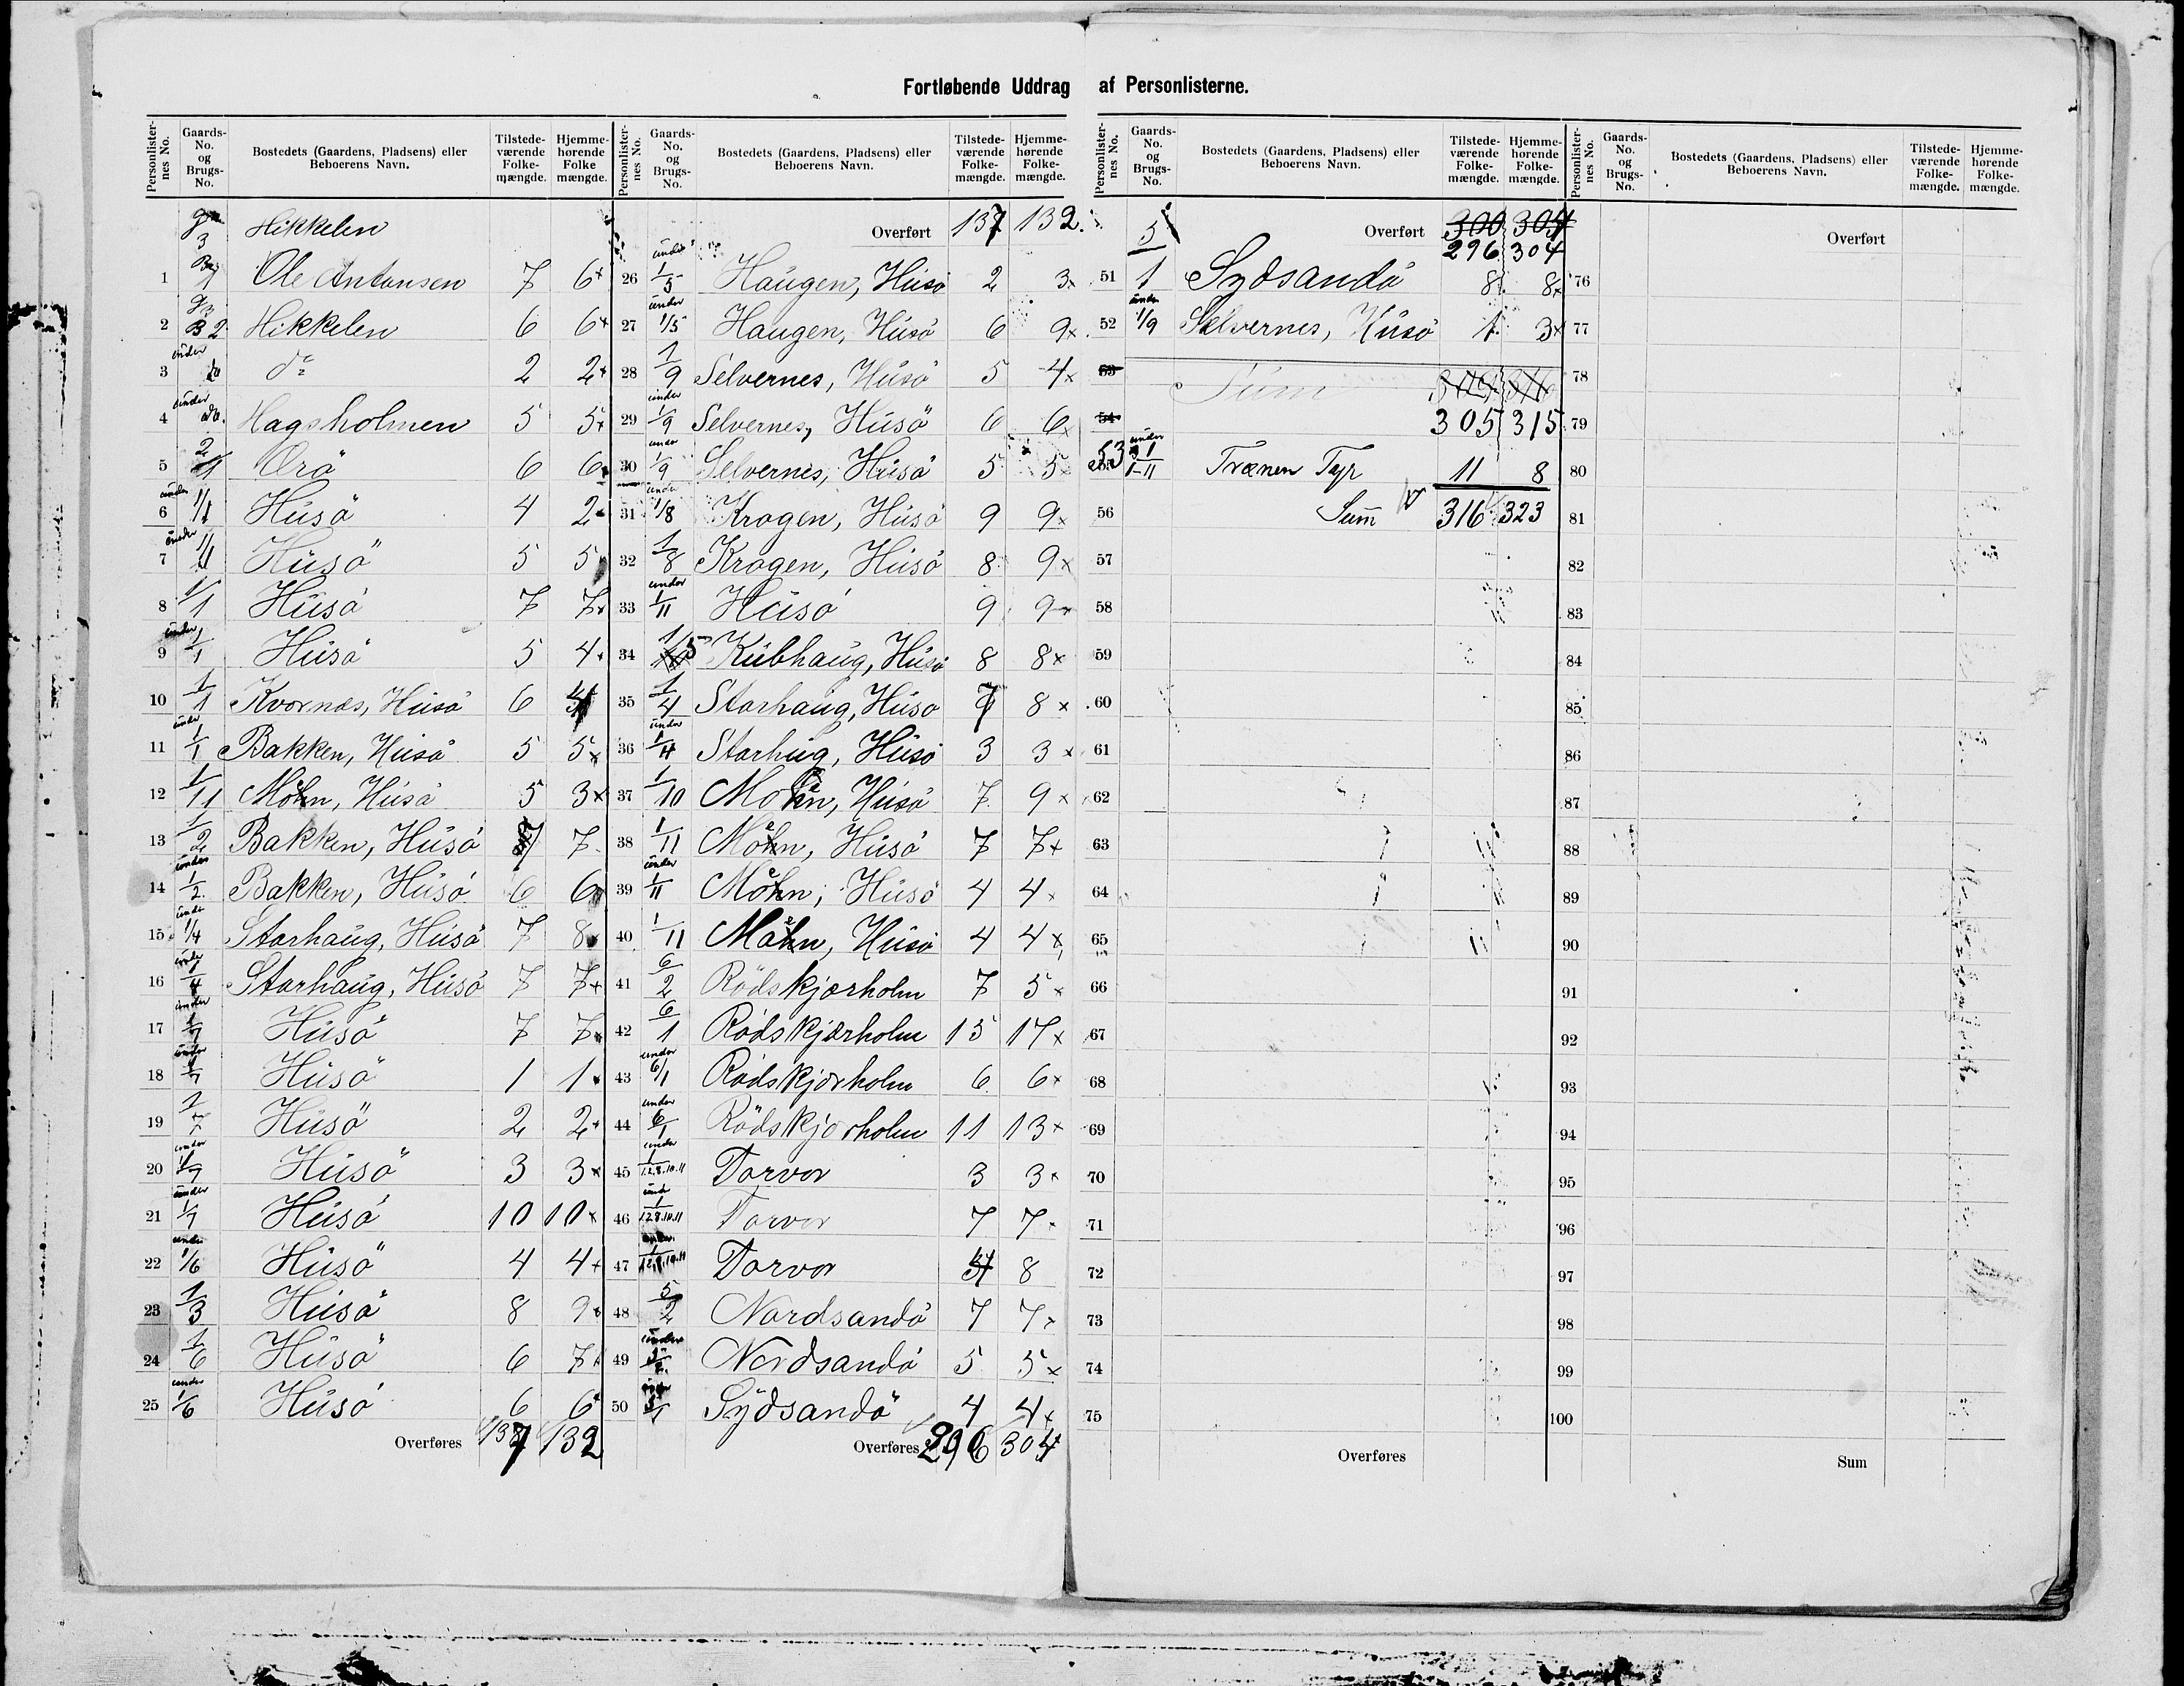 Fortløbende Uddrag af Personlisterne.
Personlister-nes No. Gaards-No. og Brugs-No. Bostedets (Gaardens, Pladsens) eller Beboerens Navn. Tilstede-værende Folke-mængde. Hjemme-hørende Folke mængde.
3 Hikkelen
1 Ole Antonsen 7 6
2 B 2 Hikkelen 6 6
3 under do do 2 2
4 under do. Hagsholmen 5 5
5 2/1 Orö 6 6
6 under 1/1 Húsö 4 2
7 under 1/1 Húsö 5 5
8 1/1 Húsö 7 7
9 under 1/1 Húsö 5 4
10 1/1 Kvornæs, Húsö 6 4
11 under 1/1 Bakken, Húsö 5 5
12 1/11 Moen, Húsö 5 3
13 1/2 Bakken, Húsö 7 7
14 under 1/2 Bakken, Húsö 6 6
15 under 1/4 Storhaug, Húsö 7 8
16 under 1/4 Storhaug, Húsö 7 7
17 under 1/7 Húsö 7 7
18 under 1/7 Húsö 1 1
19 1/7 Húsö 2 2
20 under 1/7 Húsö 3 3
21 under 1/7 Húsö 10 10
22 under 1/6 Húsö 4 4
23 1/3 Húsö 8 9
24 1/6 Húsö 6 7
25 under 1/6 Húsö 6 6
Overføres 137 132
Personlister-nes No. Gaards-No. og Brugs-No. Bostedets (Gaardens, Pladsens) eller Beboerens Navn. Tilstede-værende Folke-mængde. Hjemme-hørende Folke-mængde.
Overført 137 132
26 under 1/5 Haugen, Húsö 2 3
27 under 1/5 Haugen, Húsö 6 9
28 1/9 Selvernes, Húsö 5 4
29 under 1/9 Selvernes, Húsö 6 6
30 under 1/9 Selvernes, Húsö 5 5
31 under 1/8 Krogen, Húsö 9 9
32 1/8 Krogen, Húsö 8 9
33 under 1/11 Húsö 9 9
34 1/5 Kubhaug, Húsö 8 8
35 1/4 Storhaug, Húsö 7 8
36 under 1/4 Storhug, Húsö 3 3
37 1/10 Moen, Húsö 7 9
38 1/11 Moen, Húsö 7 7
39 under 1/11 Moen, Húsö 4 4
40 1/11 Moen, Húsö 4 4
41 6/2 Rödskjærholm 7 5
42 6/1 Rödskjærholm 15 17
43 under 6/1 Rödskjærholm 6 6
44 under 6/1 Rödskjærholm 11 13
45 under 1/1.2.8.10.11 Torvær 3 3
46 und 1/1.2.8.10.11 Torvær 7 7
47 under 1/1.2.8.10.11 Torvær 8
48 5/2 Nordsandö 7 7
49 under 5/2 Nordsandö 5 5
50 under 5/1 Sydsandö 4 4
Overføres 296 304
Personlister-nes No. Gaards-No. og Brugs-No. Bostedets (Gaardens, Pladsens) eller Beboerens Navn. Tilstede-værende Folke-mængde. Hjemme-hørende Folke-mængde.
Overført 300 304
296 304
51 5/1 Sydsandö 8 8
52 under 1/9 Selvernes, Húsö 1 3
53 Sum
54 305 315
53 under 1/1-11 Trænen Fyr 11 8
56 Sum 316 323
57
58
59
60
61
62
63
64
65
66
67
68
69
70
71
72
73
74
75
Overføres
Personlister-nes No. Gaards-No. og Brugs-No. Bostedets (Gaardens, Pladsens) eller Beboerens Navn. Tilstede-værende Folke-mængde. Hjemme-hørende Folke-mængde.
Overført
76
77
78
79
80
81
82
83
84
85
86
87
88
89
90
91
92
93
94
95
96
97
98
99
100
Sum